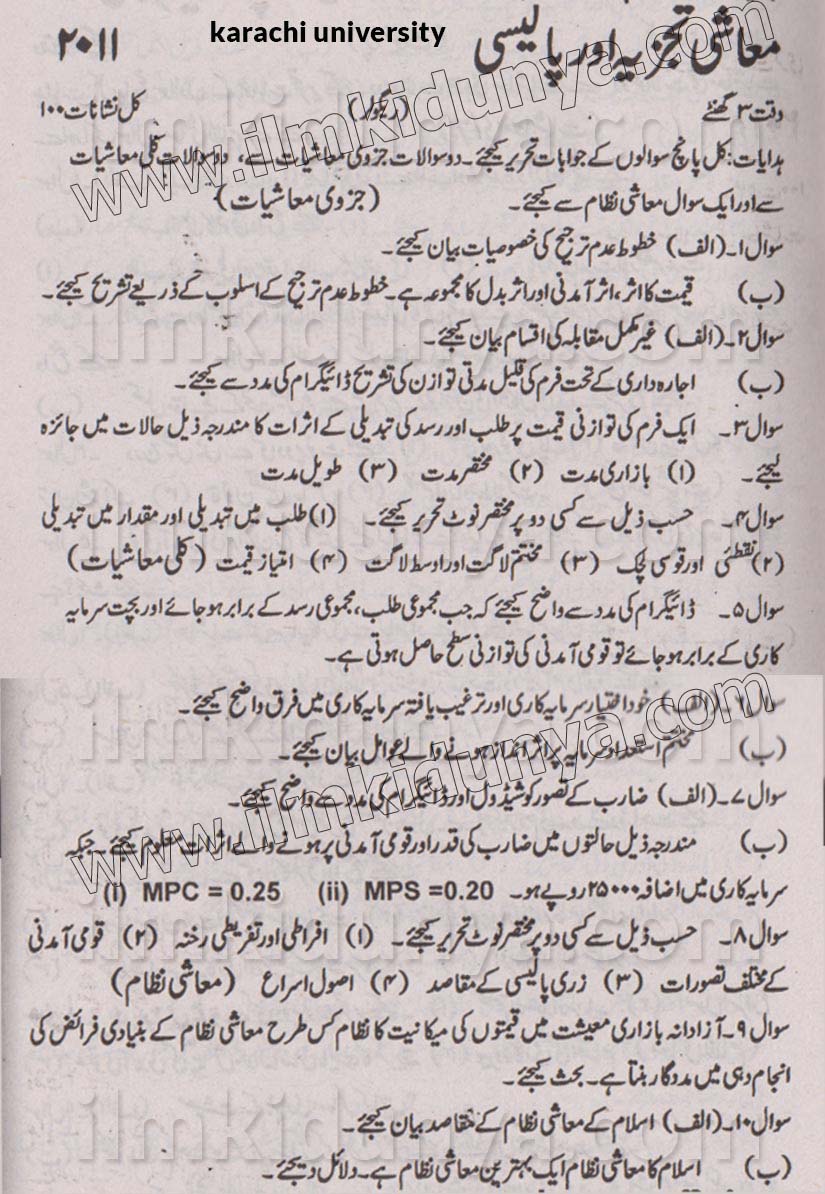 karachi university
معاشی تجزیہ اور پالیسی ۲۰۱۱
وقت ۳ گھنٹے (ریگولر) کل نشانات ۱۰۰
ہدایات: کل پانچ سوالوں کے جوابات تحریر کیجئے۔ دو سوالات جزوی معاشیات سے، دو سوالات کلی معاشیات
سے اور ایک سوال معاشی نظام سے کیجئے۔ (جزوی معاشیات)
سوال ۱۔ (الف) خطوط عدم ترجیح کی خصوصیات بیان کیجئے۔
(ب) قیمت کا اثر، اثر آمدنی اور اثر بدل کا مجموعہ ہے۔ خطوط عدم ترجیح کے اسلوب کے ذریعے تشریح کیجئے۔
سوال ۲۔ (الف) غیر مکمل مقابلہ کی اقسام بیان کیجئے۔
(ب) اجارہ داری کے تحت فرم کی قلیل مدتی توازن کی تشریح ڈائیگرام کی مدد سے کیجئے۔
سوال ۳۔ ایک فرم کی توازنی قیمت پر طلب اور رسد کی تبدیلی کے اثرات کا مندرجہ ذیل حالات میں جائزہ
لیجئے۔ (۱) بازاری مدت (۲) مختصر مدت (۳) طویل مدت
سوال ۴۔ حسب ذیل سے کسی دو پر مختصر نوٹ تحریر کیجئے۔ (۱) طلب میں تبدیلی اور مقدار میں تبدیلی
(۲) نقطئی اور قوسی لچک (۳) مختتم لاگت اور اوسط لاگت (۴) امتیاز قیمت (کلی معاشیات)
سوال ۵۔ ڈائیگرام کی مدد سے واضح کیجئے کہ جب مجموعی طلب، مجموعی رسد کے برابر ہو جائے اور بچت سرمایہ
کاری کے برابر ہو جائے تو قومی آمدنی کی توازنی سطح حاصل ہوتی ہے۔
سوال ۶۔ (الف) خود اختیار سرمایہ کاری اور ترغیب یافتہ سرمایہ کاری میں فرق واضح کیجئے۔
(ب) مختتم استعداد سرمایہ پر اثر انداز ہونے والے عوامل بیان کیجئے۔
سوال ۷۔ (الف) ضارب کے تصور کو شیڈول اور ڈائیگرام کی مدد سے واضح کیجئے۔
(ب) مندرجہ ذیل حالتوں میں ضارب کی قدر اور قومی آمدنی پر ہونے والے اثرات معلوم کیجئے۔ جبکہ
سرمایہ کاری میں اضافہ ۲۵۰۰۰ روپے ہو۔ (i) MPC = 0.25 (ii) MPS =0.20
سوال ۸۔ حسب ذیل سے کسی دو پر مختصر نوٹ تحریر کیجئے۔ (۱) افراطی اور تفریطی رخنہ (۲) قومی آمدنی
کے مختلف تصورات (۳) زری پالیسی کے مقاصد (۴) اصول اسراع (معاشی نظام)
سوال ۹۔ آزادانہ بازاری معیشت میں قیمتوں کی میکانیت کا نظام کس طرح معاشی نظام کے بنیادی فرائض کی
انجام دہی میں مددگار بنتا ہے۔ بحث کیجئے۔
سوال ۱۰۔ (الف) اسلام کے معاشی نظام کے مقاصد بیان کیجئے۔
(ب) اسلام کا معاشی نظام ایک بہترین معاشی نظام ہے۔ دلائل دیجئے۔
www.ilmkidunya.com
www.ilmkidunya.com
ilmkidunya.com
ilmkidunya.com
ilmkidunya.com
ilmkidunya.com
ilmkidunya.com
ilmkidunya.com